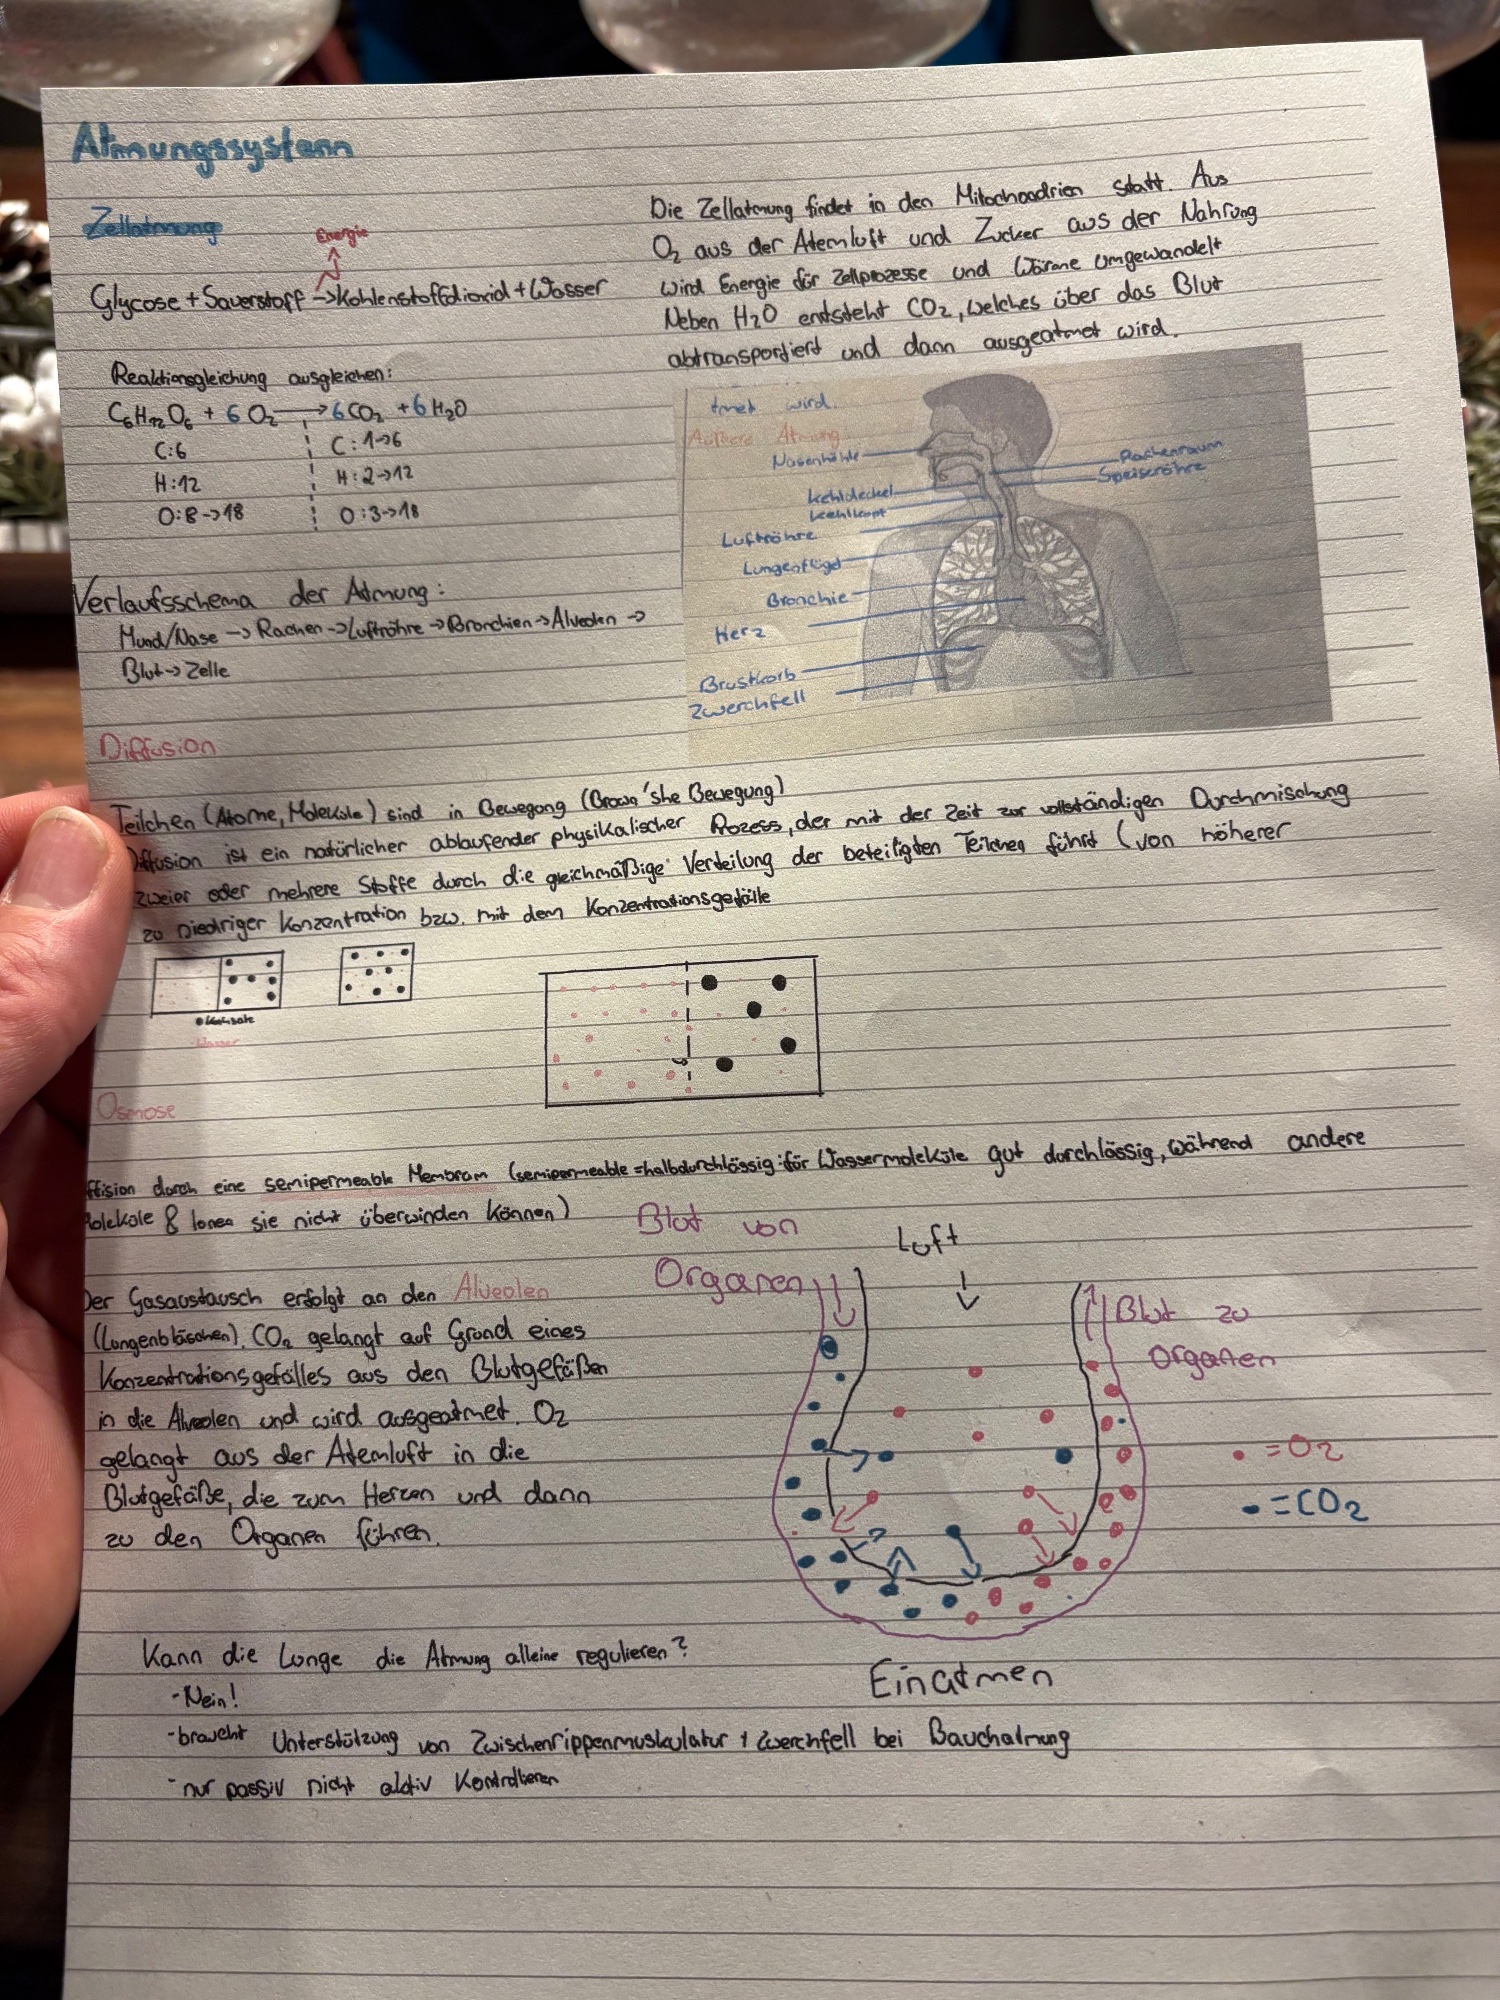 Atmungssystem
Zellatmung
Energie
Glycose + Sauerstoff -> Kohlenstoffdioxid + Wasser
Die Zellatmung findet in den Mitochondrien statt. Aus
O₂ aus der Atemluft und Zucker aus der Nahrung
wird Energie für Zellprozesse und Wärme umgewandelt
Neben H₂O entsteht CO₂, welches über das Blut
abtransportiert und dann ausgeatmet wird.
Reaktionsgleichung ausgleichen:
C₆H₁₂O₆ + 6 O₂ -> 6 CO₂ + 6 H₂O
C: 6 C: 1->6
H: 12 H: 2->12
O: 8->18 O: 3->18
tmet wird.
Äußere Atmung
Nasenhöhle
Rachenraum
Speiseröhre
Kehldeckel
Kehlkopf
Luftröhre
Lungenflügel
Bronchie
Herz
Brustkorb
Zwerchfell
Verlaufsschema der Atmung:
Mund/Nase -> Rachen -> Luftröhre -> Bronchien -> Alveolen ->
Blut -> Zelle
Diffusion
Teilchen (Atome, Moleküle) sind in Bewegung (Brown'she Bewegung)
Diffusion ist ein natürlicher ablaufender physikalischer Prozess, der mit der Zeit zur vollständigen Durchmischung
zweier oder mehrere Stoffe durch die gleichmäßige Verteilung der beteiligten Teilchen führt (von höherer
zu niedriger Konzentration bzw. mit dem Konzentrationsgefälle
Kochsalz
Wasser
Osmose
ffision durch eine semipermeable Membran (semipermeable = halbdurchlässig: für Wassermoleküle gut durchlässig, während andere
Moleküle & Ionen sie nicht überwinden können)
Blut von
Organen
Luft
Blut zu
Organen
Der Gasaustausch erfolgt an den Alveolen
(Lungenbläschen). CO₂ gelangt auf Grund eines
Konzentrationsgefälles aus den Blutgefäßen
in die Alveolen und wird ausgeatmet. O₂
gelangt aus der Atemluft in die
Blutgefäße, die zum Herzen und dann
zu den Organen führen.
= O₂
= CO₂
Einatmen
Kann die Lunge die Atmung alleine regulieren?
- Nein!
- braucht Unterstützung von Zwischenrippenmuskulatur + Zwerchfell bei Bauchatmung
- nur passiv nicht aktiv Kontrollieren